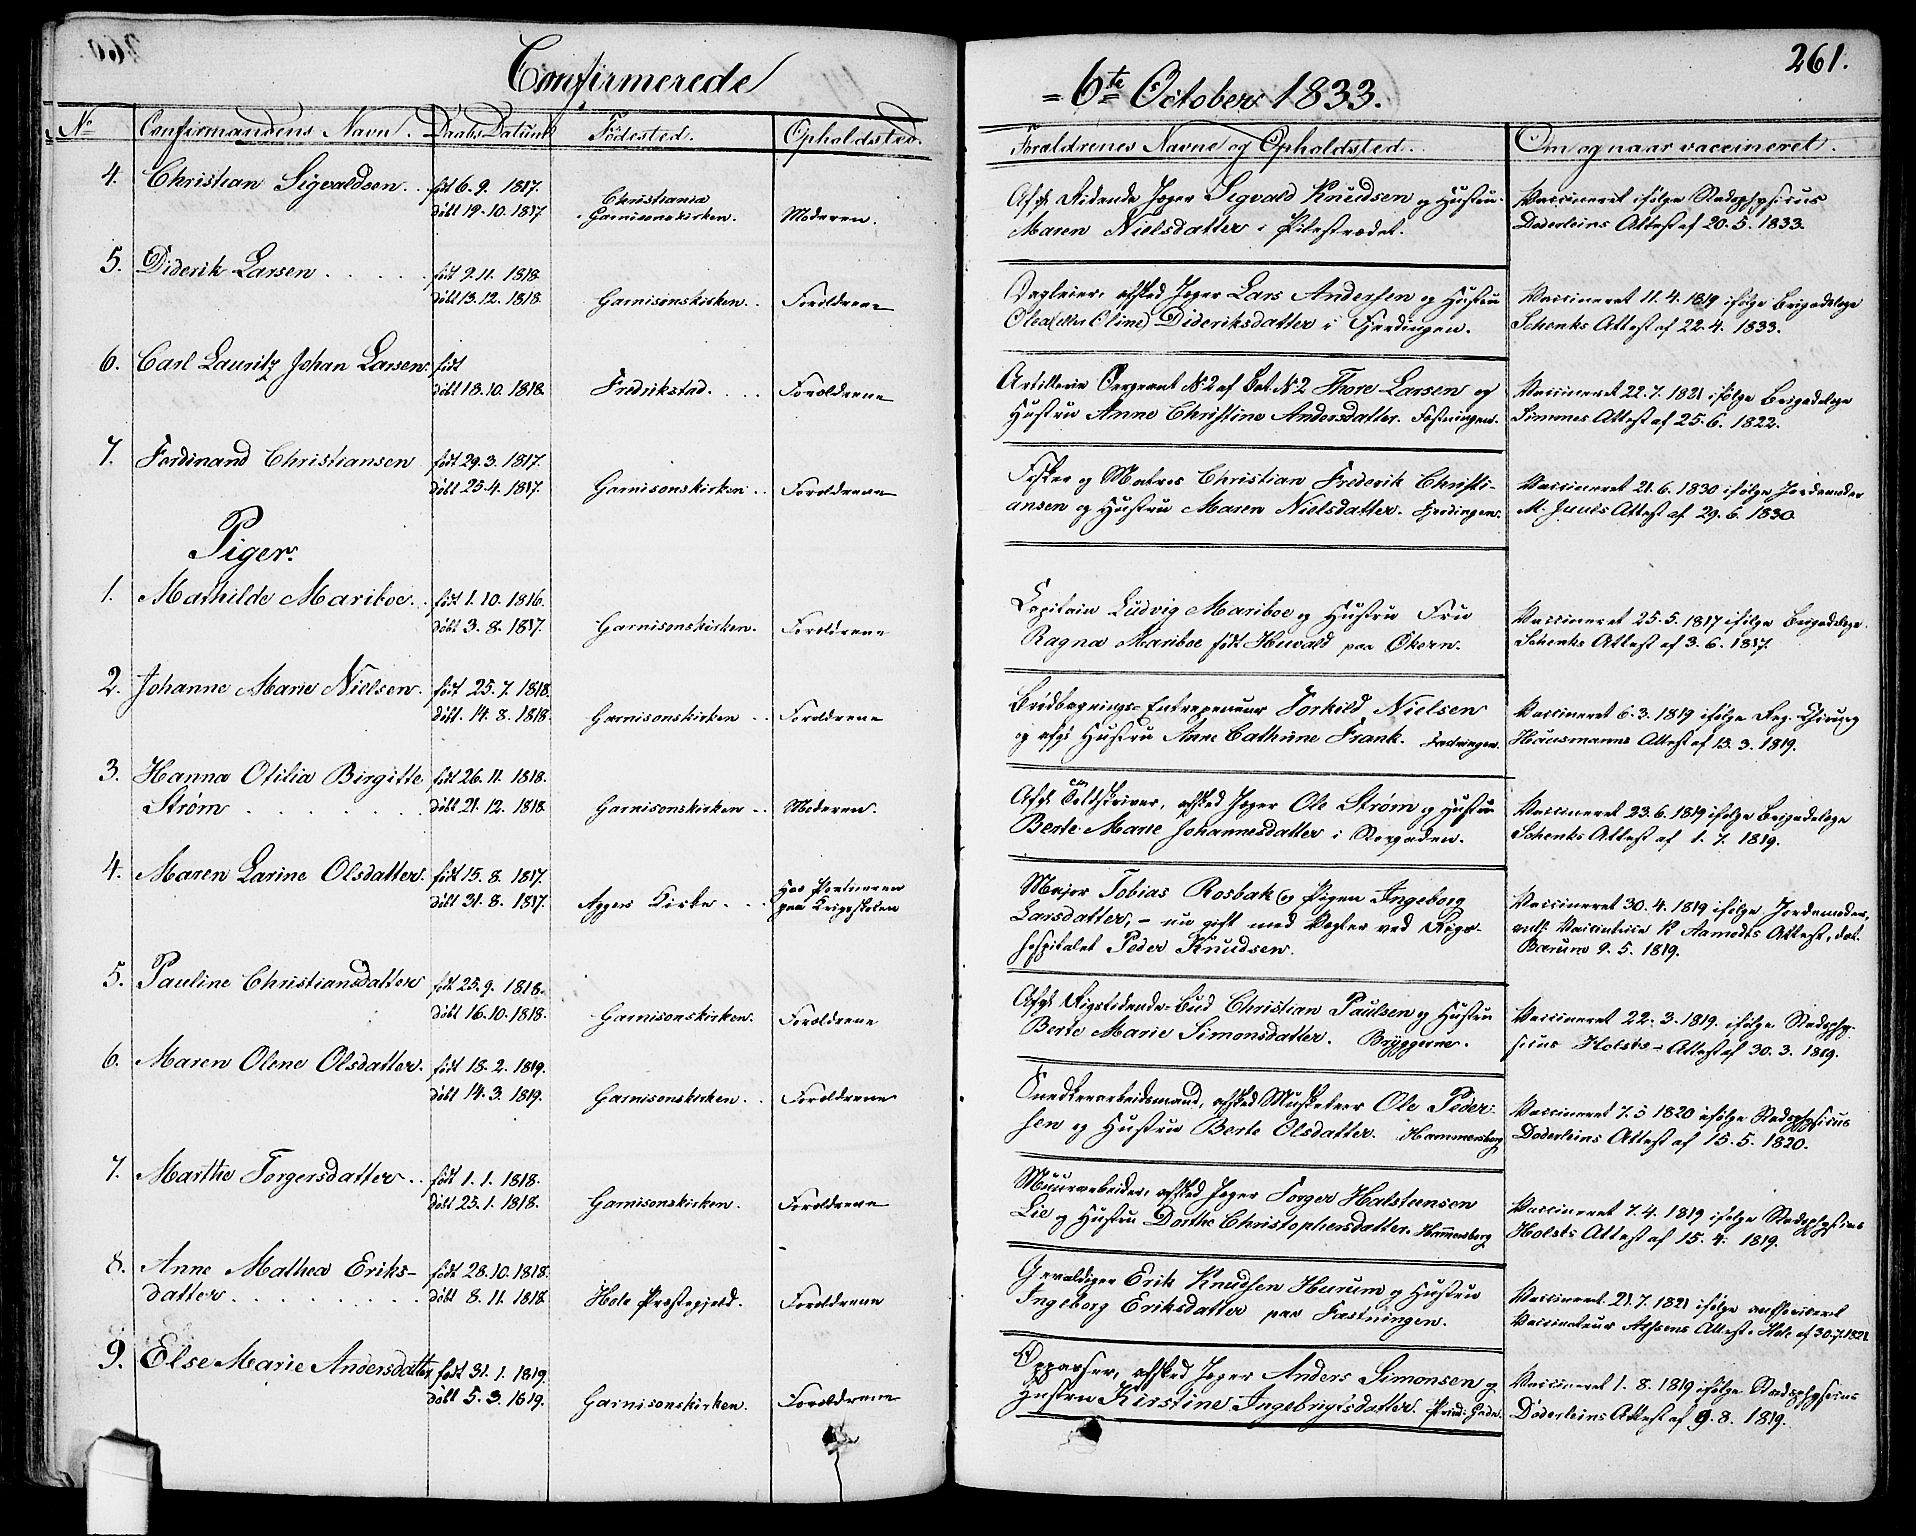 Confirmerede
No Confirmandens Navn. Daabs Datum Födested. Opholdsted.
4. Christian Sigvaldsen. födt 6. 9. 1817.
döbt 19. 10. 1817. Christiania Garnisonskirken. Moderen.
5. Diderik Larsen födt 9. 11. 1818.
döbt 13. 12. 1818. Garnisonskirken. Forældrene
6. Carl Lauritz Johan Larsen. födt
döbt 18. 10. 1818. Fredrikstad. Forældrene
7. Ferdinand Christiansen födt 29. 3. 1817.
döbt 25. 4. 1817. Garnisonskirken Forældrene
Piger.
1. Mathilde Mariboe. födt 1. 10. 1816.
döbt 3. 8. 1817. Garnisonskirken. Forældrene
2. Johanne Marie Nielsen. födt 25. 7. 1818.
döbt. 14. 8. 1818. Garnisonskirken Forældrene
3. Hanna Otilia Birgitte födt 26. 11. 1818.
Strøm döbt 21. 12. 1818. Garnisonskirken Moderen.
4. Maren Larine Olsdatter. födt 15. 8. 1817.
döbt 31. 8. 1817. Aggers Kirke hos Portneren
paa Krigsskolen
5. Pauline Christiansdatter födt 25. 9. 1818.
döbt 16. 10. 1818. Garnisonskirken. Forældrene
6. Maren Olene Olsdatter. födt 18. 2. 1819.
döbt 14. 3. 1819. Garnisonskirken. Forældrene
7. Marthe Torgersdatter födt 1. 1. 1818.
döbt 25. 1. 1818. Garnisonskirken. Forældrene
8. Anne Mathea Eriks- födt 28. 10. 1818.
datter döbt 8. 11. 1818 Hole Præstegjeld. Forældrene
9. Else Marie Andersdatter födt 31. 1. 1819.
döbt 5. 3. 1819. Garnisonskirken. Forældrene
= 6te October 1833.
261.
Forældrenes Navne og Opholdsted. Om og naar vaccineret.
Afg. Ridende Jæger Sigvald Knudsen og Hustru
Maren Nielsdatter i Pilestrædet.
Vaccineret ifölge Stadsphysicus
Döderleins Attest af 20. 5. 1833.
Dagleier, afsked Jæger Lars Andersen og Hustru
Olea (eller Oline) Dideriksdatter i Fjerdingen.
Vaccineret 11. 4. 1819 ifölge Brigadelæge
Schenks Attest af 22. 4. 1833.
Artillerie Sergeant N 2 af Bat. N 2 Thore Larsen og
Hustru Anne Christine Andersdatter. Fæstningen.
Vaccineret 22. 7. 1821 ifölge Brigadelæge
Attest af 25. 6. 1822.
Fisker og Matros Christian Frederik Christi-
ansen og Hustru Maren Nielsdatter. Fjerdingen.
Vaccineret 21. 6. 1830 ifölge Jordemoder
M. Juuls Attest af 29. 6. 1830.
Capitain Ludvig Mariboe og Hustru Fru
Ragna Mariboe födt Huvald paa Økern.
Vaccineret 25. 5. 1817 ifölge Brigadelæge
Schenks Attest af 3. 6. 1817.
Brödbagnings-Entrepeneur Torkild Nielsen
og afg. Hustru Anne Cathrine Frank. Fæstningen.
Vaccineret 6. 3. 1819 ifölge Reg. Chirurg
Hausmanns Attest af 13. 3. 1819.
Afg. Toldskriver, afsked Jæger Ole Strøm og Hustru
Berte Marie Johannesdatter i
Vaccineret 23. 6. 1819 ifölge Brigadelæge
Schenks Attest af 1. 7. 1819.
Major Tobias Rosbak og Pigen Ingeborg
Larsdatter, - nu gift med Vægter ved Rigs-
hospitalet Peder Knudsen.
Vaccineret 30. 4. 1819 ifölge Jordemoder,
Aamodts Attest, dat.
Bærum 9. 5. 1819.
Afg. Rigstidende-Bud Christian Paulsen og Hustru
Berte Marie Simonsdatter. Bryggerne.
Vaccineret 22. 3. 1819. ifölge Stadsphy-
sicus Holsts Attest af 30. 3. 1819.
Snedkerarbeidsmand, afsked Musketeer Ole Peder-
sen og Hustru Berte Olsdatter. Hammersborg
Vaccineret 7. 5 1820 ifölge Stadsphysicus
Döderleins Attest af 15. 5. 1820.
Muurarbeider, afsked Jæger Torger Halsteensen
Lie og Hustru Dorthe Christophersdatter. Hammersborg
Vaccineret 7. 4. 1819 ifölge Stadsphysicus
Holsts Attest af 15. 4. 1819.
Gevaldiger Erik Knudsen Hurum og Hustru
Ingeborg Eriksdatter paa Fæstningen.
Vaccineret. 21. 7. 1821 ifölge authoriseret
Vaccinateur Attest. Hole af 30. 7. 1821
Oppasser, afsked Jæger Anders Simonsen og
Hustru Kirstine Ingebrigtsdatter.
Vaccineret 1. 8. 1819 ifölge Stadsphysicus
Döderleins Attest af 9. 8. 1819.